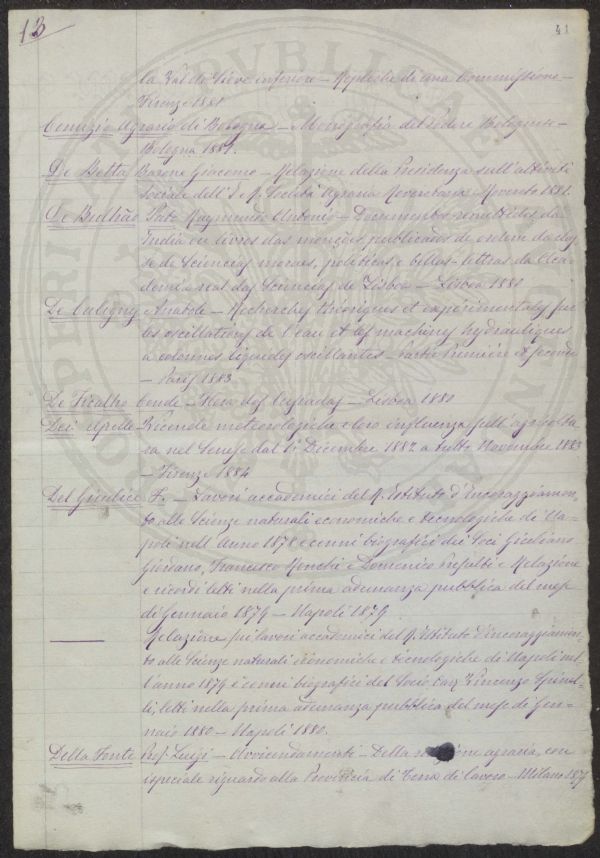 13
41
la Val di Sieve inferiore – Repliche di una Commissione –
Firenze 1881
Comizio Agrario di Bologna – Monografia del podere Bolognese –
Bologna 1881.
De Betta Barone Giacomo – Relazione della Presidenza sull'attività
sociale dell'I. R. Società Agraria Roveretana – Rovereto 1881.
De Bulhão Pato Raymundo Antonio – Documentos remettidos da
India ou livros das monções, publicados de ordem da clas
se de Sciencias moraes, politicas, e bellas-lettras da Aca
demia real das Sciencias de Lisboa – Lisboa 1880
De Caligny Anatole – Recherches théoriques et expérimentales sur
les oscillations de l'eau et les machines hydrauliques
à colonnes liquides oscillantes – Partie Première et seconde
– Paris 1883
De Ficalho Conde – Flora dos Lusiadas – Lisboa 1880
Dei Apelle Vicende meteorologiche e loro influenza sull'agricoltu
ra nel Senese dal 1º Dicembre 1882 a tutto Novembre 1883
– Firenze 1884
Del Giudice F. – Lavori accademici del R. Istituto d'Incoraggiamen
to alle Scienze naturali economiche e tecnologiche di Na
poli nell'anno 1878 e cenni biografici dei Soci Giuliano
Giordano, Francesco e Domenico e Relazione
e ricordi letti nella prima adunanza pubblica del mese
di Gennaio 1879 – Napoli 1879.
Relazione sui lavori accademici del R. Istituto d'incoraggiamen
to alle Scienze naturali economiche e tecnologiche di Napoli nel
l'anno 1879 e cenni biografici del Socio Cav. Vincenzo
letti nella prima adunanza pubblica del mese di Gen
naio 1880 – Napoli 1880.
Della Fonte Prof. Luigi – Avvicendamenti – Della agraria, con
ispeciale riguardo alla Provincia di Terra di lavoro – Milano 187